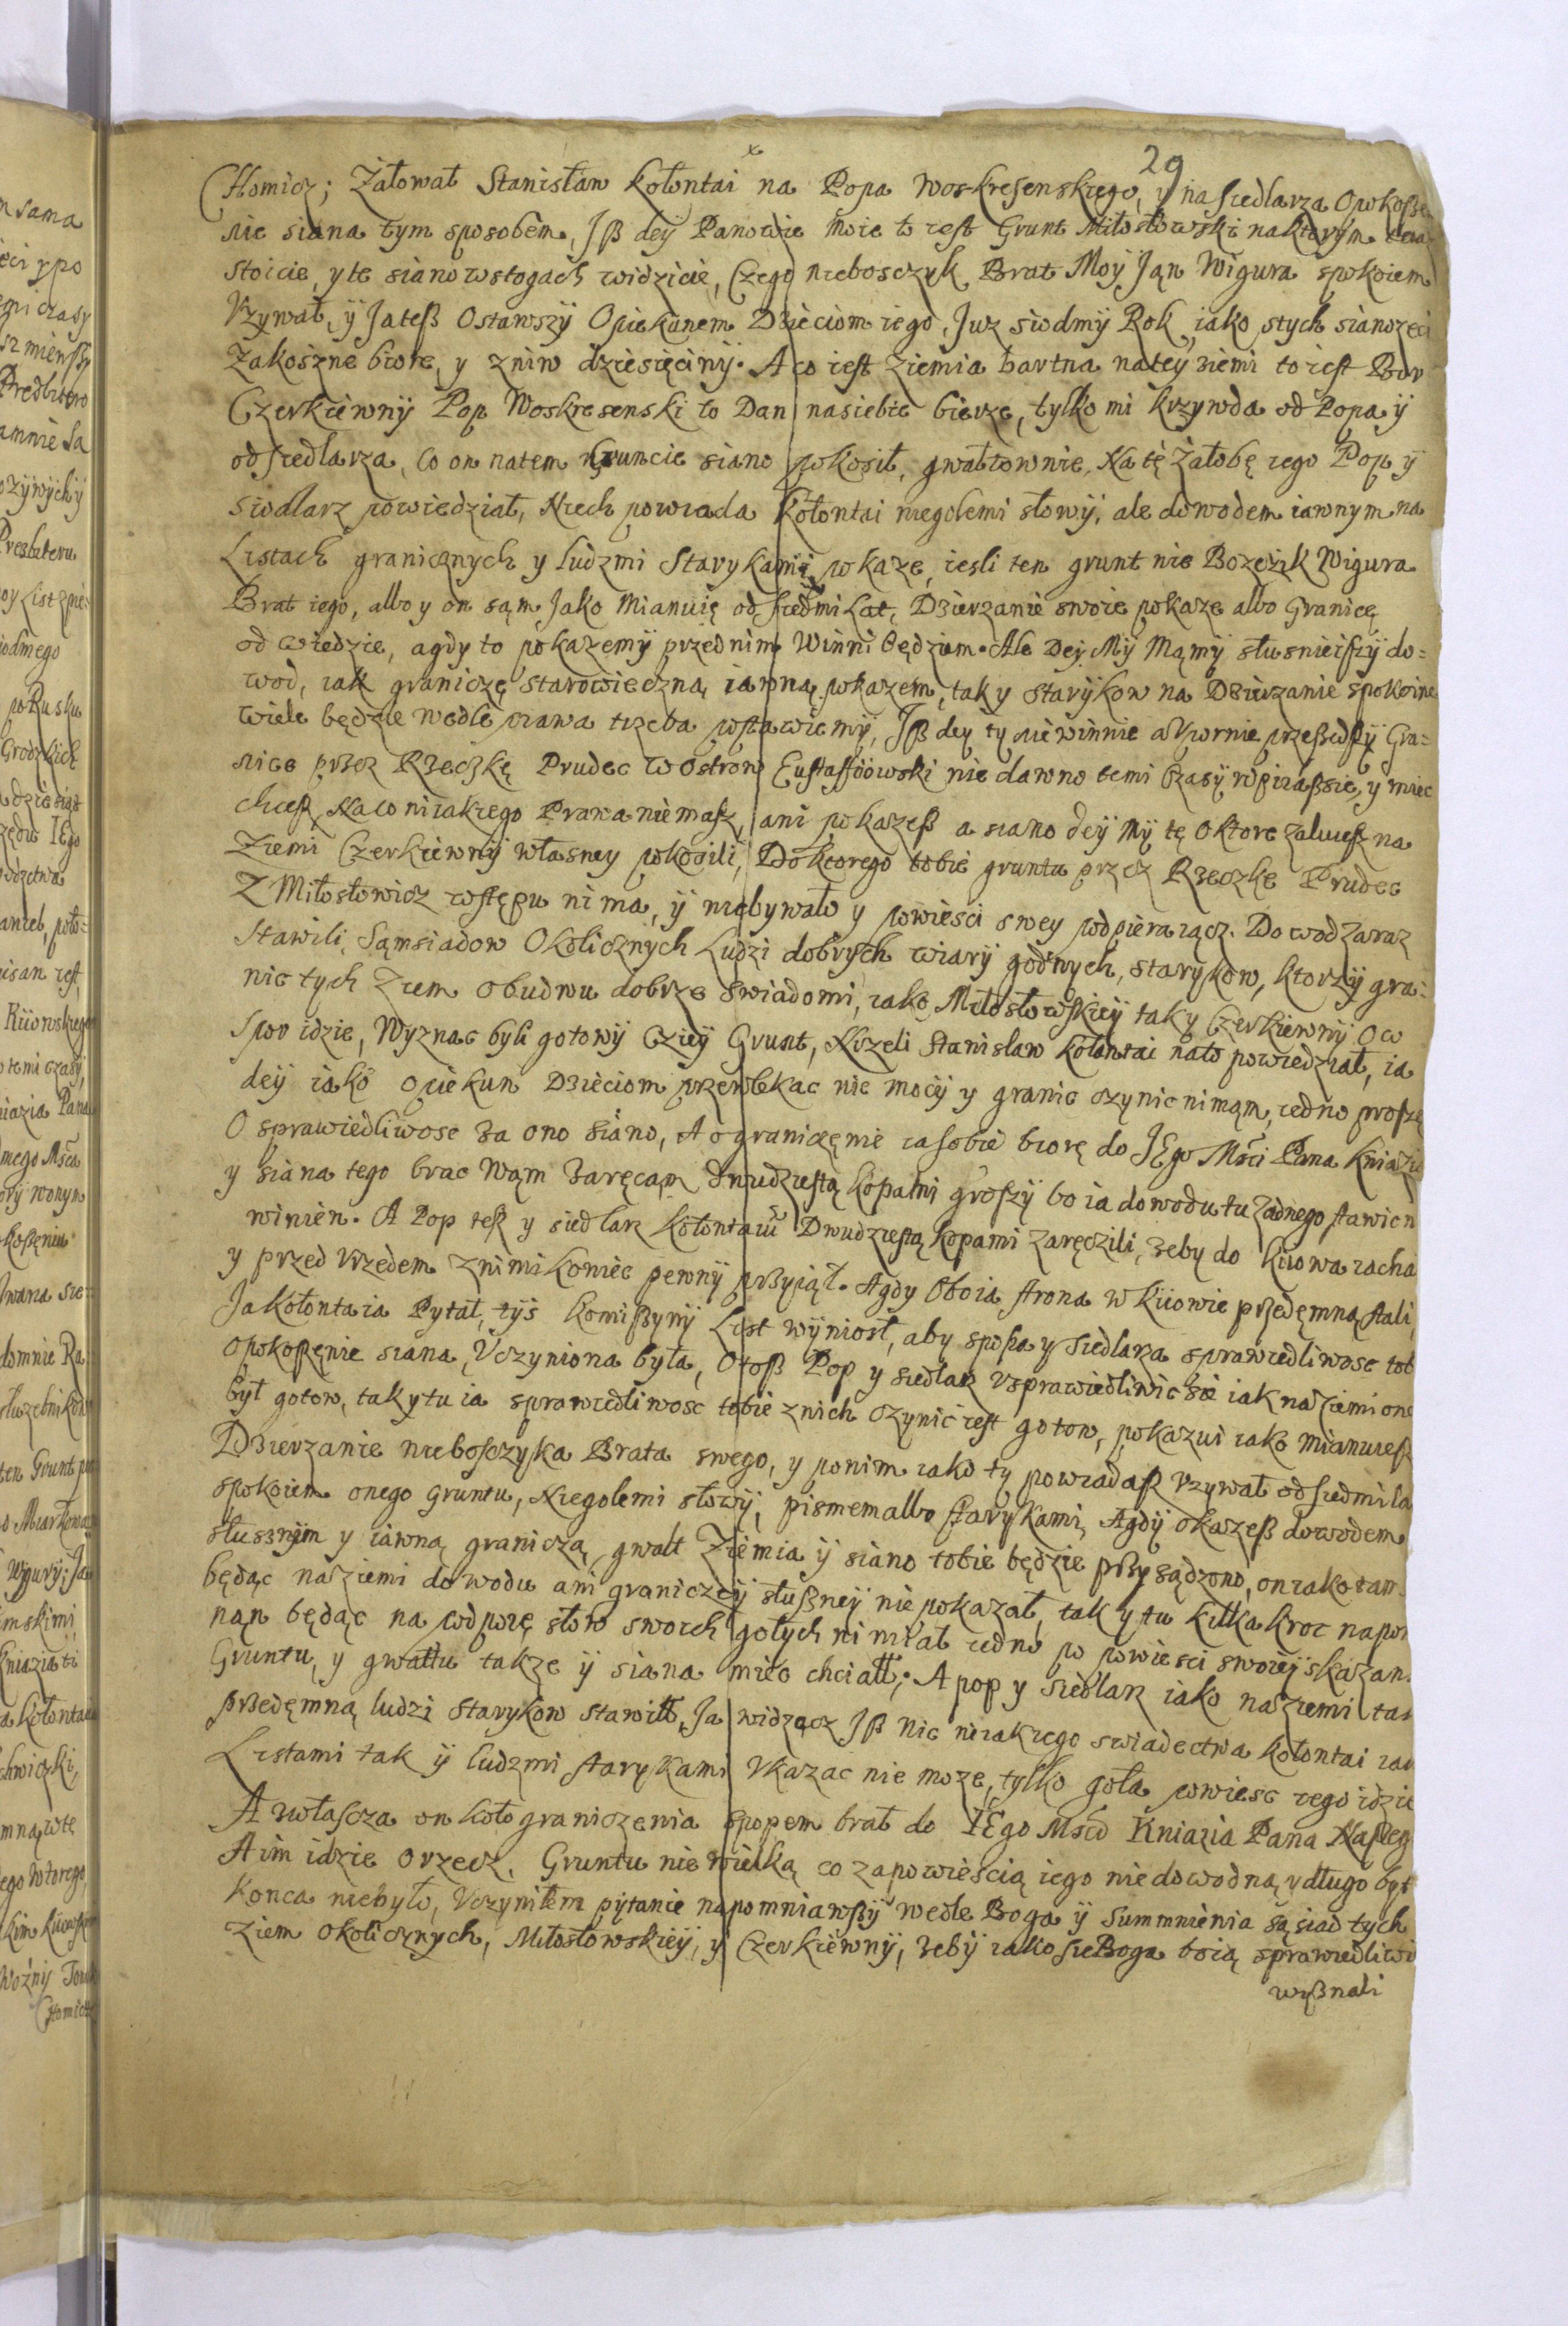 29
Chomicz; Załował Stanisław kołontai na Popa Woskresenskiego, y na siedlarza Opokosze
nie siana tym sposobem, Jß deÿ Panowie moie to iest Grunt Miłosłowski naktorÿm teraz
stoicie, y te siano wstogach widzicie, Czego nieboszczyk Brat Moÿ Jan Wigura spokoiem
Vzÿwał, ÿ Ja teß Ostawszÿ Opiekunem Dzieciom iego, Juz siodmÿ Rok, iako stych sianozęci
Zakoszne biore, y zniw dziesięcinÿ. A co iest Ziemia bartna nateÿ ziemi to iest Bor
Czerkiewnÿ Pop Woskresenski to Dan nasiebie bierze, tylko mi krzywda od Popa ÿ
od siedlarza, Co on natem Gruncie siano pokosił, gwałtownie, Na tę Załobę iego Pop ÿ
siodlarz powiedział, Niech powiada kołontai niegołemi słowÿ, ale dowodem iawnym na
Listach granicznych y ludzmi Starykamÿ pokaze, iesli ten grunt nie Bozczik Wigura
Brat iego, albo y on sąm Jako Mianuię od siedmi Lat, Dzierzanie swoie pokaze albo Granicę
od wiedzie, agdy to pokazemÿ przednim Winni będziem. Ale Deÿ Mÿ Mąmÿ słusnieiszÿ do=
wod, iak graniczę starowieczną iawną pokazem, tak y starÿkow na Dzierzanie spokoine
wiele będzie wedle prawa trzeba postawiemÿ, Jß dey ty niewinnie a Vpornie przeßedszÿ Gra=
nice przez Rzeczkę Prudec w Ostrow Eustaffiiowski nie dawno temi Czasÿ wpiraßsie, y miec
chceß, Naco niiakiego Prawa niemasz, ani pokazeß a siano deÿ mÿ tę oktore zaluiesz na
Ziemi Czerkiewnÿ własney pokosili, Doktorego tobie gruntu przez Rzeczkę Prudec
Z Miłosłowicz wstępu nima, ÿ niebywało y powiesci swey podpieraiącz. Dowod zaraz
stawili, Sąmsiadow Okolicznych Ludzi dobrych wiarÿ godnych, starykow, ktorzÿ gra=
nic tych Ziem obudwu dobrze swiadomi, iako Miłosłowskieÿ tak y Czerkiewnÿ O co
spor idzie, Wyznac byli gotowÿ Czieÿ Grunt, Nizeli Stanisław kołontai nato powiedział, ia
deÿ iako opiekun Dzieciom przewłekac nie mocÿ y granic czynic nimąm, iedno proszę
O sprawiedliwosc za ono siano, A o graniczęnie iasobie biorę do JEgo Msci Pana Kniazia
y siana tego brac Wąm Zaręcąm Dwudziestą kopami groszÿ bo ia dowodu tu Zadnego stawicn
winien. A Pop teß y siedlarz kołontaiu Dwudziestą kopami zaręczili, zeby do kiiowa iacha
y przed Vrzedem znimi koniec pewnÿ przyiął. Agdy Oboia strona w kiiowie przedęmną stali,
Ja kołontaia Pytał, tÿs komißynÿ List wÿniosł, aby spopa y Siedlarza sprawiedliwosc tob
Opokoszęnie siana, Vczyniona była, Otoß Pop y siedlarz Vsprawiedliwic sie iak na Ziemi one
był gotow, tak y tu ia sprawiedliwosc tobie znich czynic iest gotow, pokazui iako mianuiesz
Dzierzanie nieboszczyka Brata swego, y ponim iako ty powiadasz Vzywał od siedmi la
spokoiem onego gruntu, Niegołemi słowÿ, pismem albo starykami, Agdÿ okazeß dowodem
słusznÿm y iawną graniczą, gwałt Ziemia ÿ siano tobie będzie przysądzono, on iako tam
będąc naziemi dowodu ani graniczeÿ słußneÿ nie pokazał, tak y tu kilka kroc napom
nąn będąc na podporę słow swoich gołych ni miał iedno po powiesci swoieÿ skazan
Gruntu, y gwałtu takze ÿ siana miec chciałł; A pop y siedlarz iako naziemi tam
przedęmną ludzi starykow stawiłł, Ja widzącz Jß nic niiakiego swiadectwa kołontai iak
Listami tak ÿ ludzmi starykami Vkazac nie moze, tylko goła powiesc iego idzie
A zwłascza on koło graniczenia spopem brał do JEgo Mscÿ Kniazia Pana Naszeg
A im idzie o rzecz, Gruntu nie wielką co zapowiescią iego niedowodną ydługo byt
Konca niebyło, Vczyniłem pÿtanie napomniawßÿ wedle Boga ÿ Summnienia sąsiad tych
Ziem okolicznych, Miłosłowskieÿ, y Czerkiewnÿ, zebÿ iako sie Boga boią sprawiedliwi
wyßnali